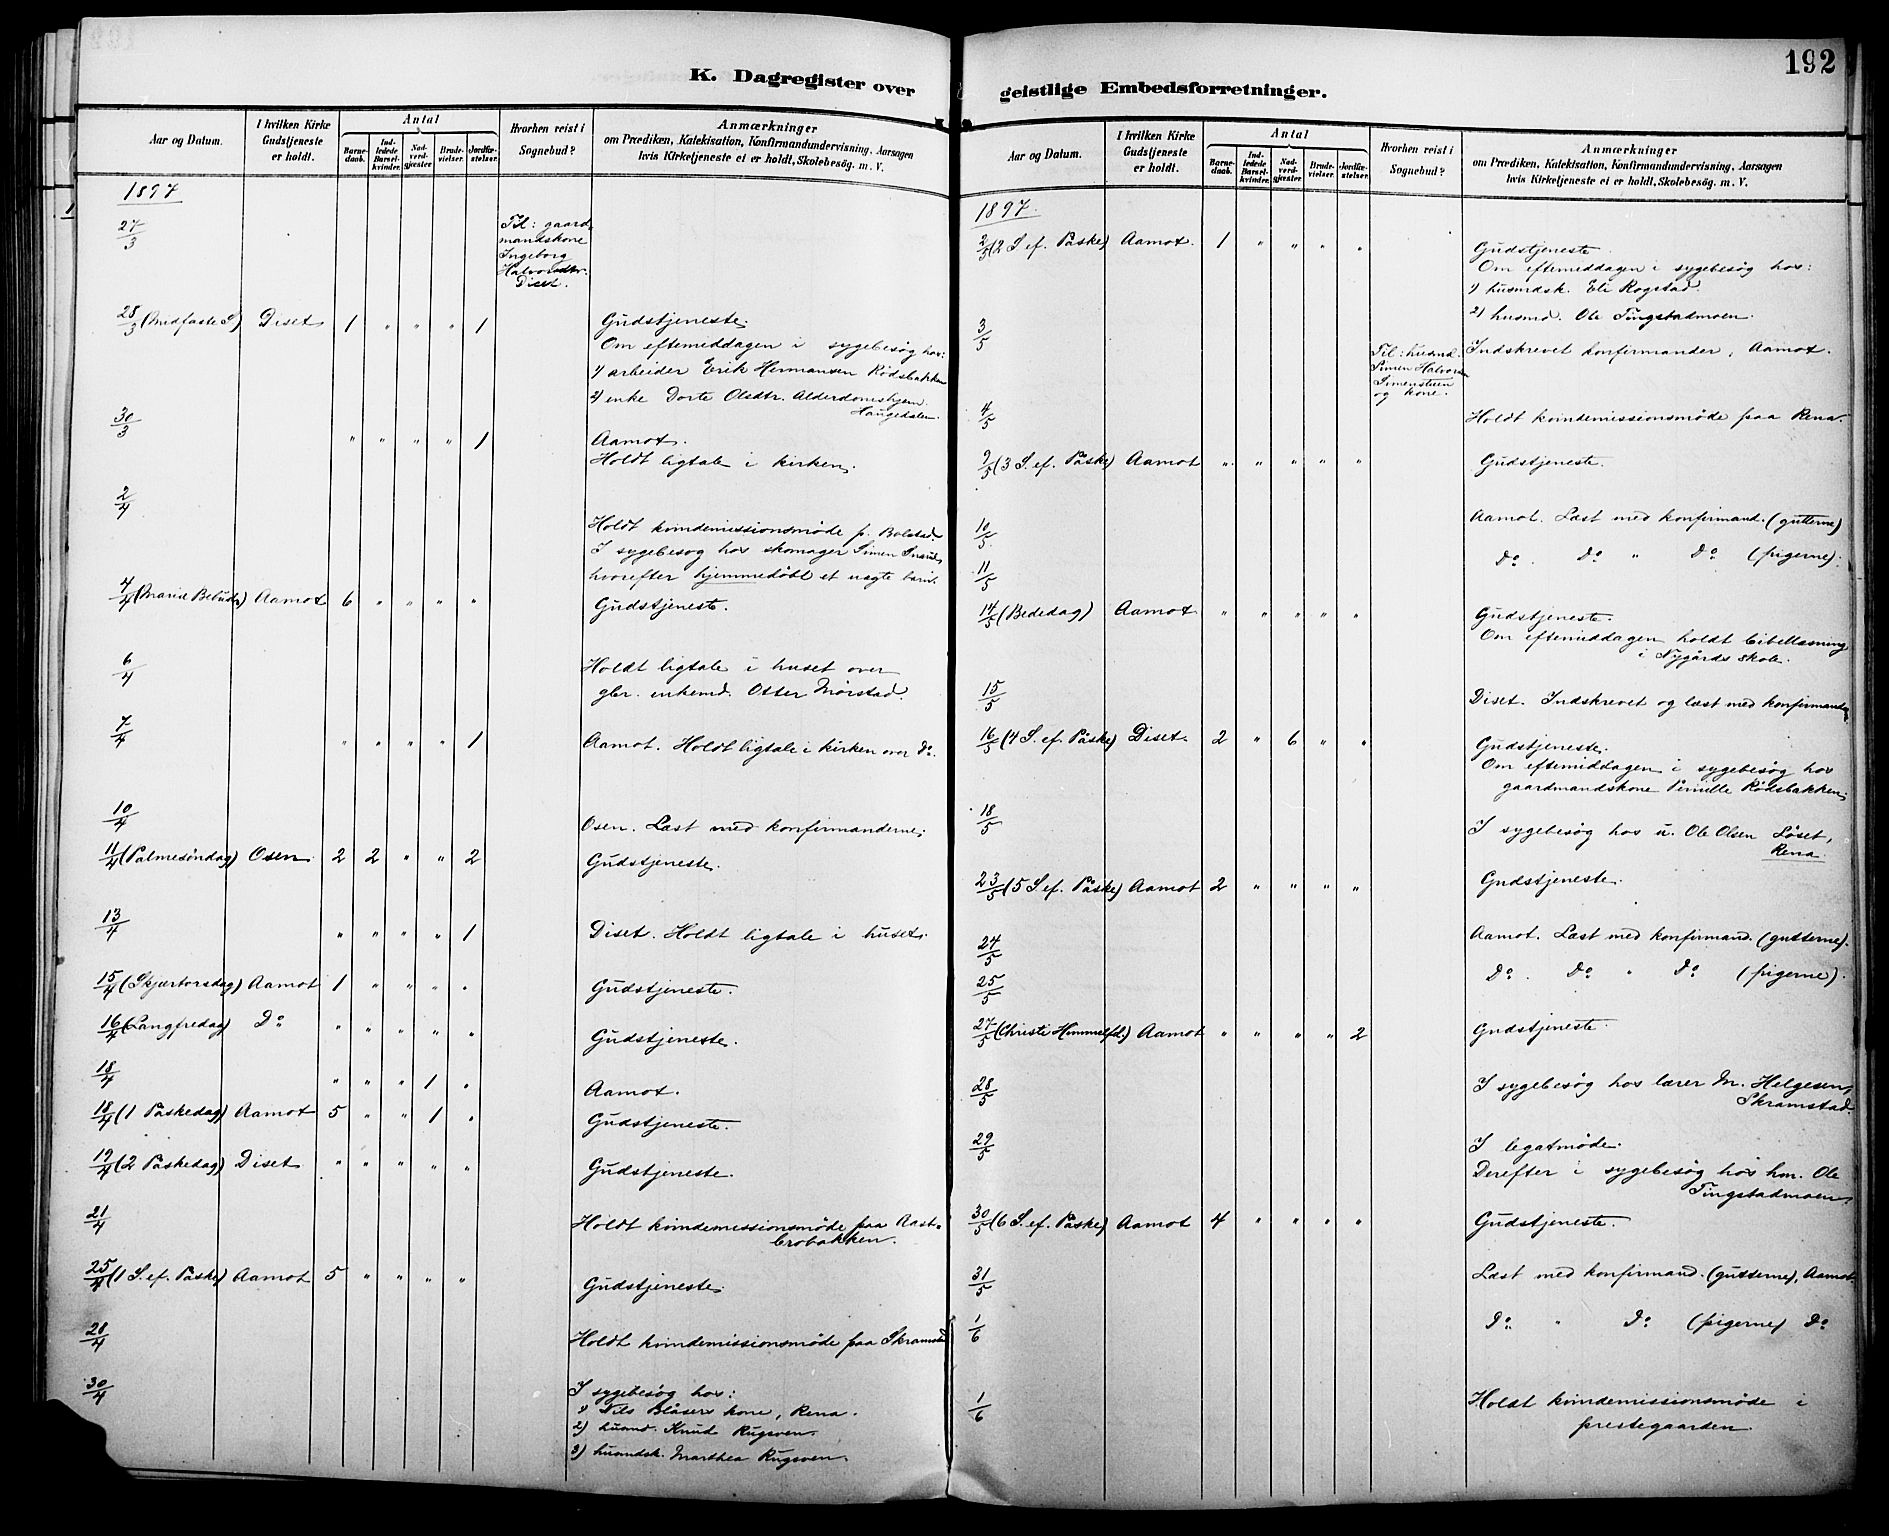 192
K. Dagregister over
geistlige Embedsforretninger.
Aar og Datum.
I hvilken Kirke Gudstjeneste er holdt.
Antal
Barne-daab.
Ind-ledede Barsel-kvinder.
Nad-verd-gjæster.
Brude-vielser.
Jordfæ-stelser.
Hvorhen reist i Sognebud?
Anmærkninger
om Prædiken, Katekisation, Konfirmandundervisning, Aarsagen
hvis Kirketjeneste ei er holdt, Skolebesøg. m. V.
1897
27/3 Til: gaard-
mandskone
Ingeborg
Halvorsdtr.
Diset.
28/3 (Midfaste S.) Diset 1 " " " 1 Gudstjeneste.
Om eftemiddagen i sygebesøg hos:
1) arbeider Erik Hermansen Rødsbakken
2) enke Dorte Olsdtr. Alderdomshjem
Haugedalen.
30/3 " " " " 1 Aamot.
Holdt ligtale i kirken.
2/4 Holdt kvindemissionsmøde p. Bolstad.
I sygebesøg hos skomager Simen
hvorefter hjemmedøbt et uægte barn.
4/4 (Mariæ Bebud.) Aamot 6 " " " " Gudstjeneste.
6/4 Holdt ligtale i huset over
gbr. enkemd. Otter Mørstad.
7/4 " " " " 1 Aamot. Holdt ligtale i kirken over Do.
10/4 Osen. Læst med konfirmanderne.
11/4 (Palmesøndag) Osen. 2 2 " " 2 Gudstjeneste.
13/4 " " " " 1 Diset. Holdt ligtale i huset.
15/4 (Skjærtorsdag) Aamot 1 " " " " Gudstjeneste.
16/4 (Langfredag) Do " " " " " Gudstjeneste.
18/4 " " " 1 " Aamot.
18/4 (1 Påskedag) Aamot 5 " " 1 " Gudstjeneste.
19/4 (2 Påskedag) Diset " " " " " Gudstjeneste.
21/4 Holdt kvindemissionsmøde paa Aast-
brobakken.
25/4 (1 S. ef. Påske) Aamot 5 " " " " Gudstjeneste.
28/4 Holdt kvindemissionsmøde paa Skramstad
30/4 I sygebesøg hos:
1) Nils Blåsers kone, Rena.
2) husmd. Knud Rugsveen.
3) husmdsk. Marthea Rugsveen.
Aar og Datum.
I hvilken Kirke Gudstjeneste er holdt.
Antal
Barne-daab.
Ind-ledede Barsel-kvinder.
Nad-verd-gjæster.
Brude-vielser.
Jordfæ-stelser.
Hvorhen reist i Sognebud?
Anmærkninger
om Prædiken, Katekisation, Konfirmandundervisning, Aarsagen
hvis Kirketjeneste ei er holdt, Skolebesøg. m. V.
1897.
2/5 (2 S. ef. Påske) Aamot. 1 " " " " Gudstjeneste.
Om eftemiddagen i sygebesøg hos:
1) husmdsk. Eli Rogstad.
2) husmd. Ole Tingstadmoen.
3/5 Til: husmd.
Simen Halvorsen
Simenstuen
og kone. Indskrevet konfirmander, Aamot.
4/5 Holdt kvindemissionsmøde paa Rena.
9/5 (3 S. ef. Påske) Aamot " " " " " Gudstjeneste.
10/5 Aamot. Læst med konfirmand. (gutterne)
11/5 Do. Do " Do (pigerne).
14/5 (Bededag) Aamot " " " " " Gudstjeneste.
Om eftemiddagen holdt bibellæsning
i Nygårds skole.
15/5 Diset. Indskrevet og læst med konfirmander
16/5 (4 S. ef. Påske) Diset. 2 " 6 " " Gudstjeneste.
Om eftemiddagen i sygebesøg hos
gaardmandskone Pernille Rødsbakken.
18/5 I sygebesøg hos u. Ole Olsen Løset,
Rena.
23/5 (5 S. ef. Påske) Aamot 2 " " " " Gudstjeneste.
24/5 Aamot. Læst med konfirmand. (gutterne).
25/5 Do. Do " Do (pigerne).
27/5 (Christi Himmelfd.) Aamot " " " " 2 Gudstjeneste.
28/5 I sygebesøg hos lærer M. Helgesen,
Skramstad
29/5 I legatmøde.
Derefter i sygebesøg hos hm. Ole
Tingstadmoen.
30/5 (6 S. ef. Påske) Aamot 4 " " " " Gudstjeneste.
31/5 Læst med konfirmand. (gutterne), Aamot
1/6 Do. " Do (pigerne) Do
1/6 Holdt kvindemissionsmøde i
prestegaarden.